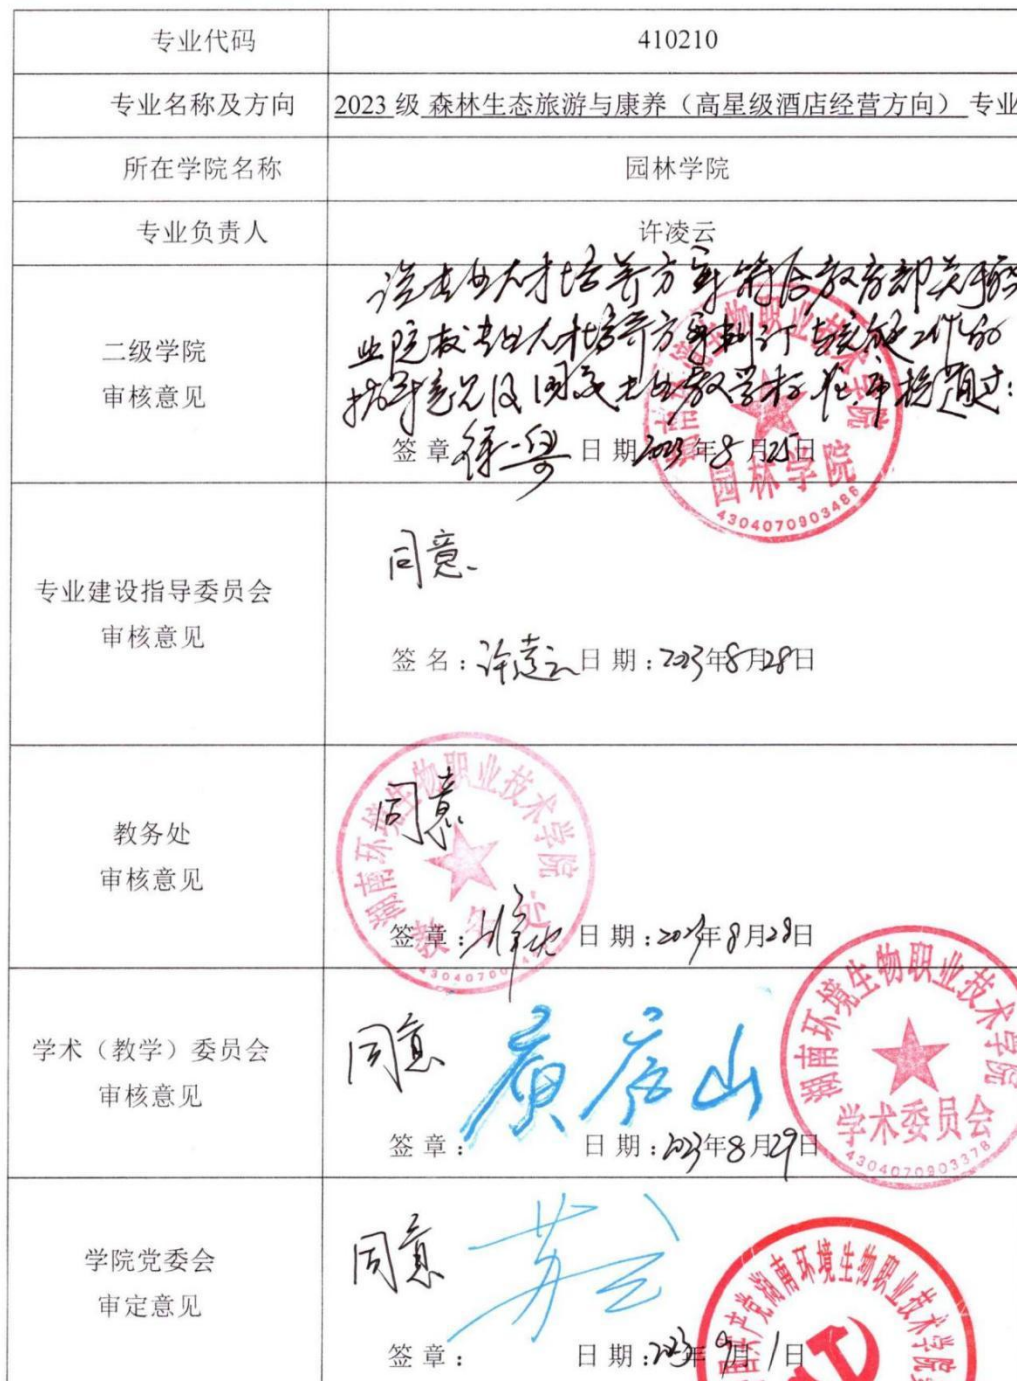 专业代码
410210
专业名称及方向
2023 级 森林生态旅游与康养（高星级酒店经营方向） 专业
所在学院名称
园林学院
专业负责人
许凌云
二级学院
审核意见
该专业人才培养方案符合教育部关于职
业院校专业人才培养方案制订与实施工作的
指导意见及国家专业教学标准,审核通过:
签 章 日 期 2023 年 8 月 25 日
湖南环境生物职业技术学院
园林学院
4304070903486
专业建设指导委员会
审核意见
同意
签 名：许凌云 日 期：2023年8月28日
教务处
审核意见
同意
签 章： 日 期：2023年8月28日
湖南环境生物职业技术学院
教务处
学术（教学）委员会
审核意见
同意
签 章： 日 期：2023年8月29日
湖南环境生物职业技术学院
学术委员会
4304070903378
学院党委会
审定意见
同意
签 章： 日 期：2023年9月1日
共产党湖南环境生物职业技术学院